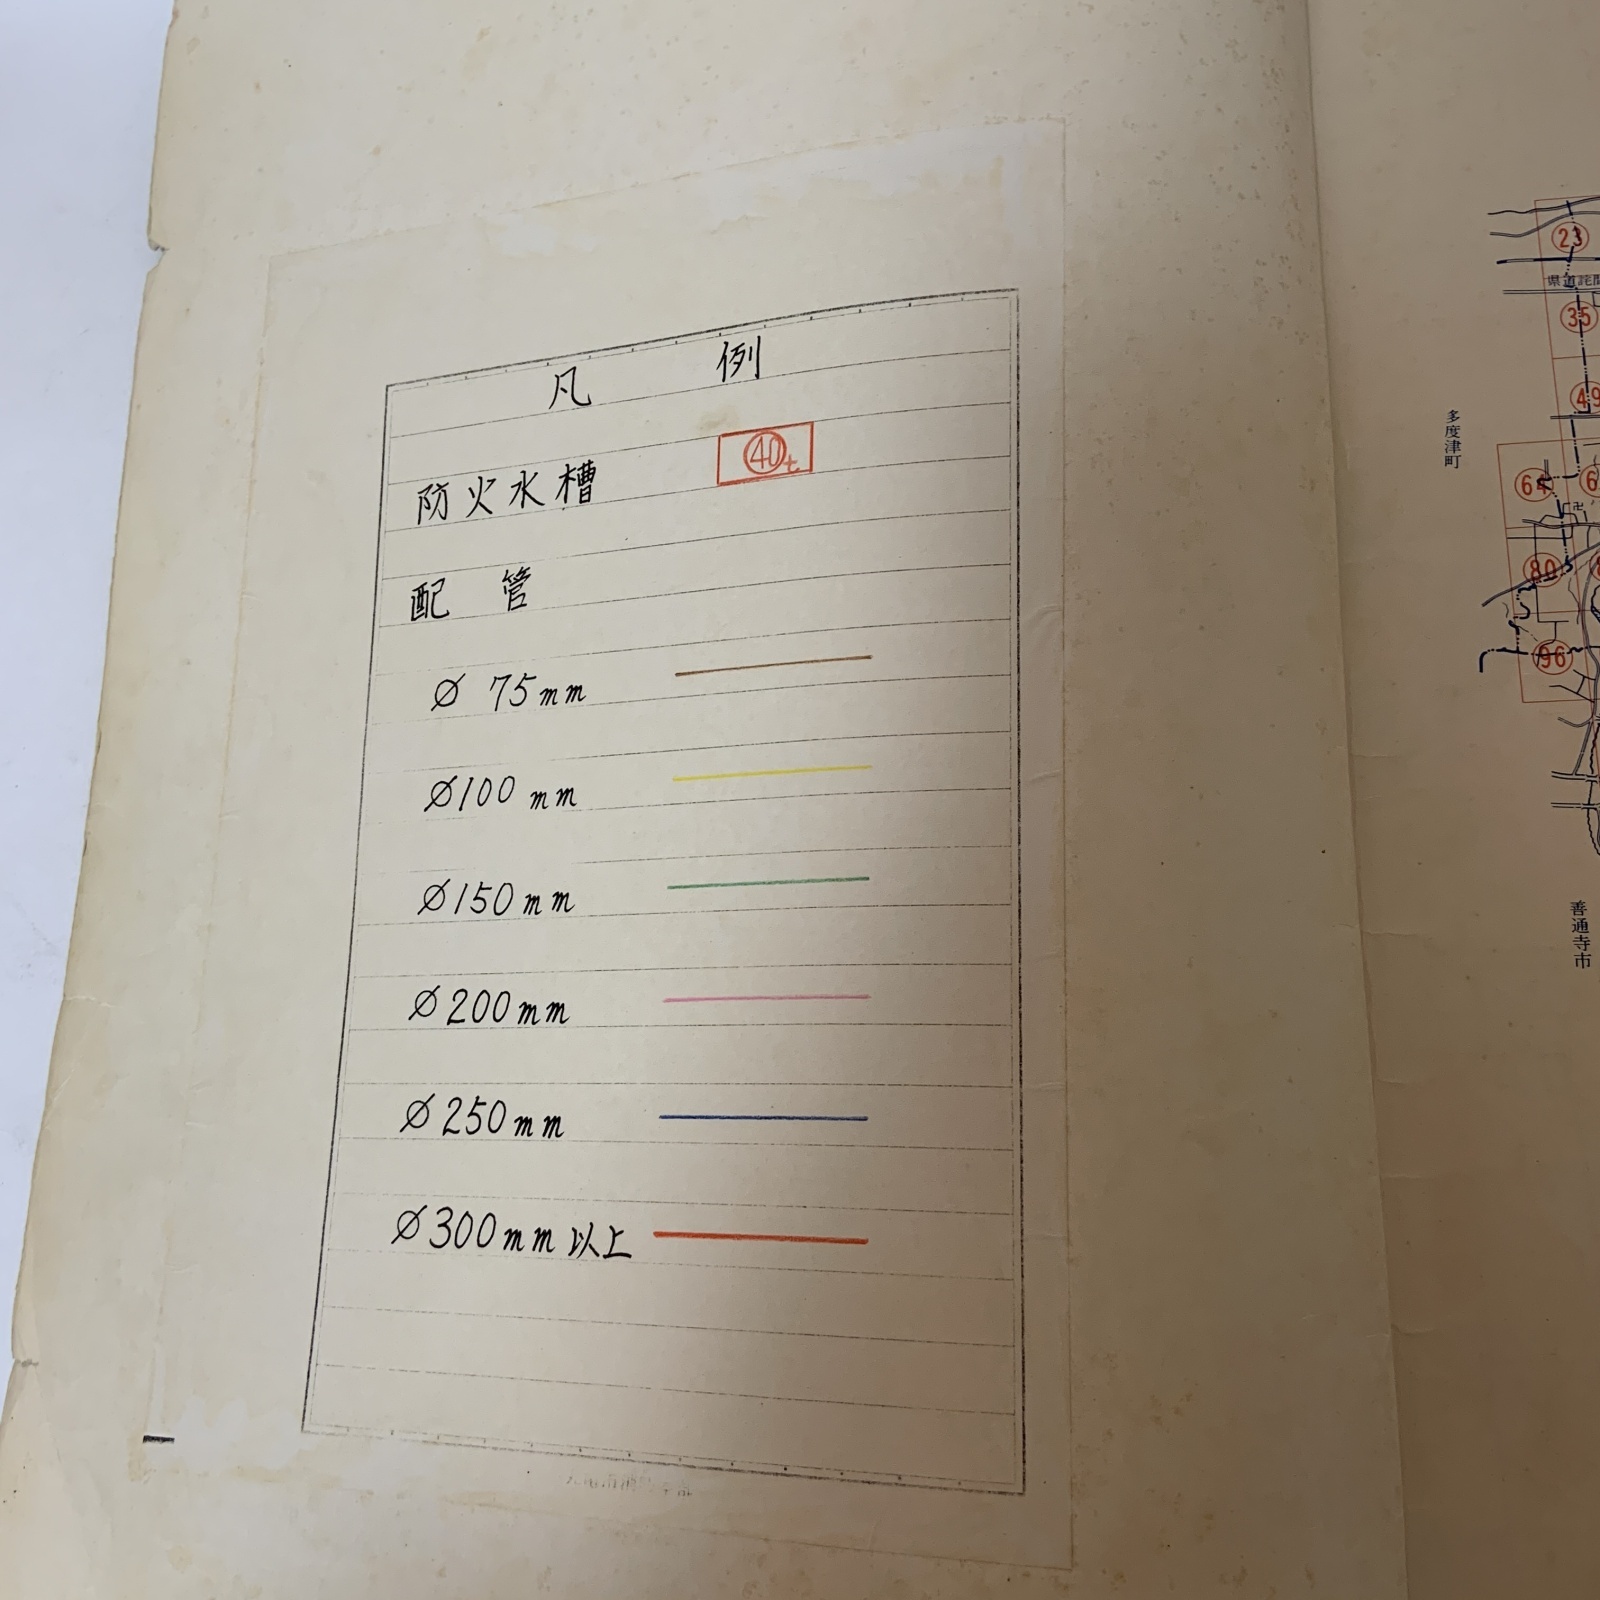 凡例
防火水槽 40t
配管
Ø 75mm
Ø100mm
Ø150mm
Ø200mm
Ø250mm
Ø300mm以上
23
県道詫間
35
49
多度津町
64
80
96
善通寺市